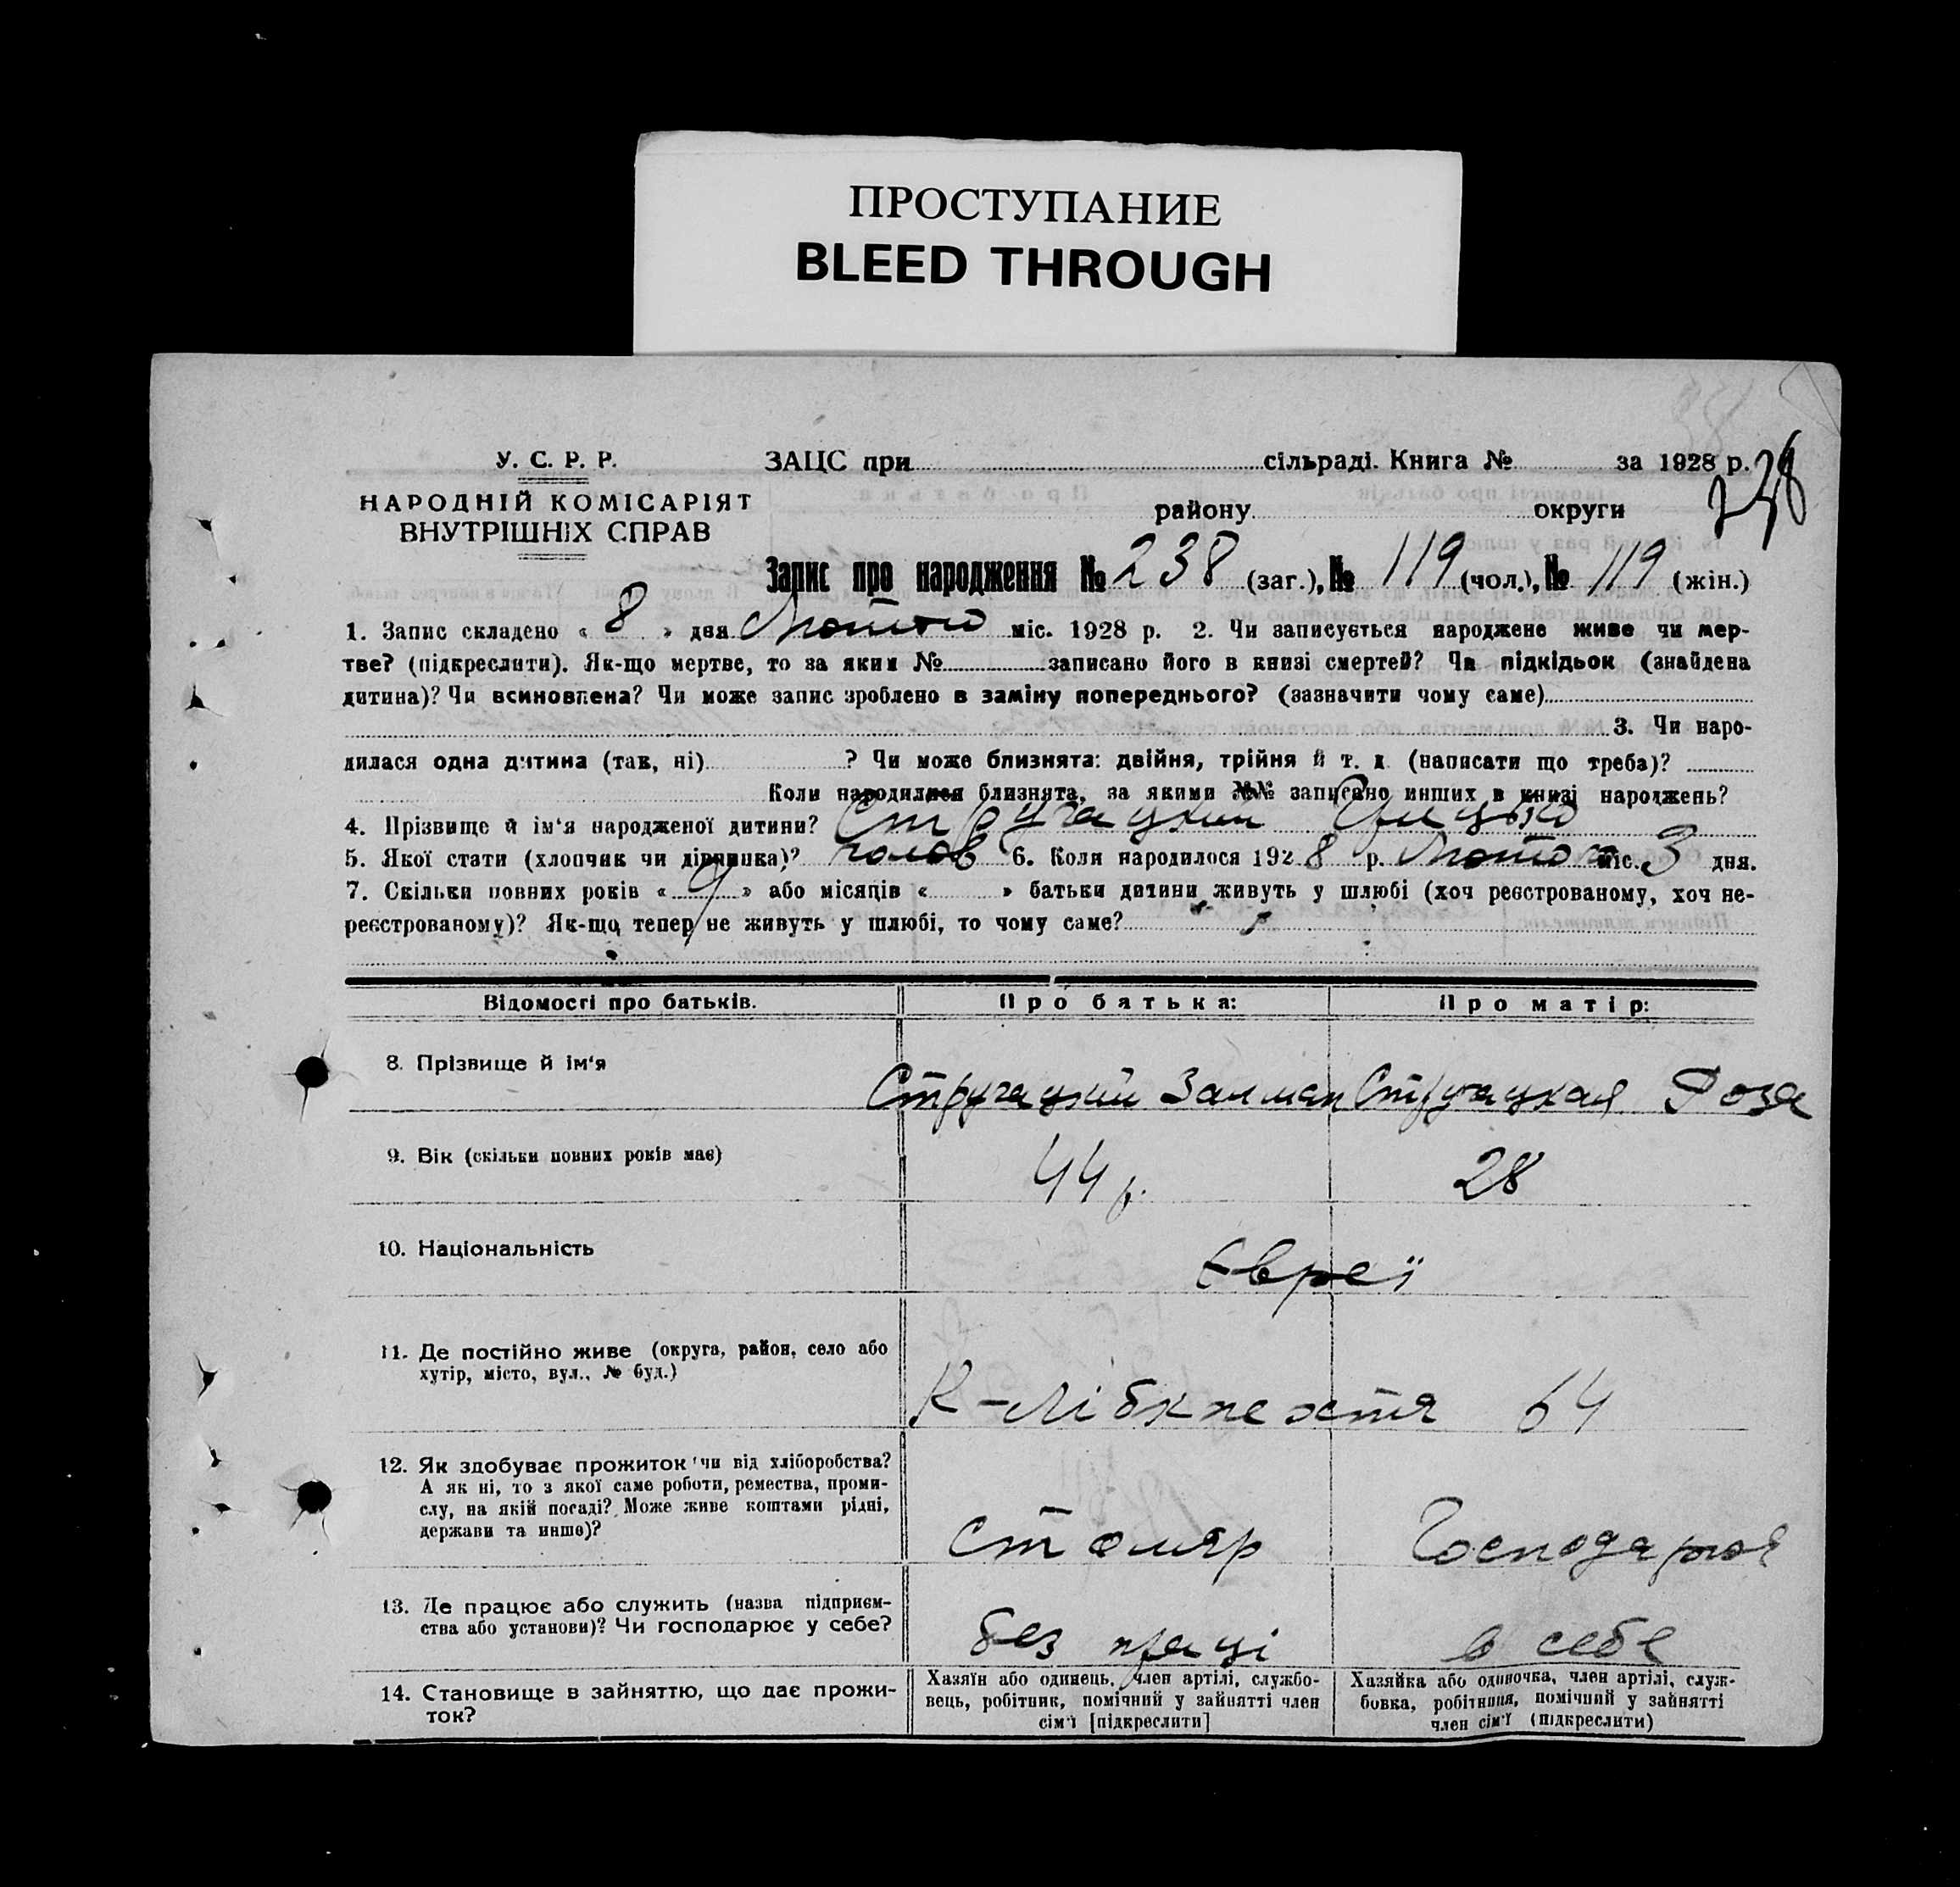 ПРОСТУПАНИЕ
BLEED THROUGH
У. С. Р. Р.
НАРОДНІЙ КОМІСАРІЯТ
ВНУТРІШНІХ СПРАВ
ЗАЦС при сільраді. Книга № за 1928 р.
238
району округи
Запис про народження № 238 (заг.), № 119 (чол.), № 119 (жін.)
1. Запис складено « 8 » дня Лютого міс. 1928 р. 2. Чи записується народжене живе чи мер-
тве? (підкреслити). Як-що мертве, то за яким № записано його в книзі смертей? Чи підкідьок (знайдена
дитина)? Чи всиновлена? Чи може запис зроблено в заміну попереднього? (зазначити чому саме)
3. Чи наро-
дилася одна дитина (так, ні) ? Чи може близнята: двійня, трійня й т. д. (написати що треба)?
Коли народилися близнята, за якими №№ записано инших в книзі народжень?
4. Прізвище й ім'я народженої дитини? Стругацкий
5. Якої стати (хлопчик чи дівчинка)? чолов 6. Коли народилося 1928 р. Лютого міс. 3 дня.
7. Скільки повних років « 9 » або місяців « » батьки дитини живуть у шлюбі (хоч реєстрованому, хоч не-
реєстрованому)? Як-що тепер не живуть у шлюбі, то чому саме?
Відомості про батьків. Про батька: Про матір:
8. Прізвище й ім'я Стругацкий Залман Стругацкая Роза
9. Вік (скільки повних років має) 44 р. 28
10. Національність Євреї
11. Де постійно живе (округа, район, село або
хутір, місто, вул., № буд.)
К-Лібкнехтя 64
12. Як здобуває прожиток чи від хліборобства?
А як ні, то з якої саме роботи, ремества, проми-
слу, на якій посаді? Може живе коштами рідні,
держави та инше)?
Столяр Господарюя
13. Де працює або служить (назва підприєм-
ства або установи)? Чи господарює у себе?
без праці в себе
14. Становище в зайняттю, що дає прожи-
ток?
Хазяїн або одинець, член артілі, службо-
вець, робітник, помічний у зайнятті член
сім'ї [підкреслити]
Хазяйка або одиночка, член артілі, служ-
бовка, робітниця, помічний у зайнятті
член сім'ї (підкреслити)